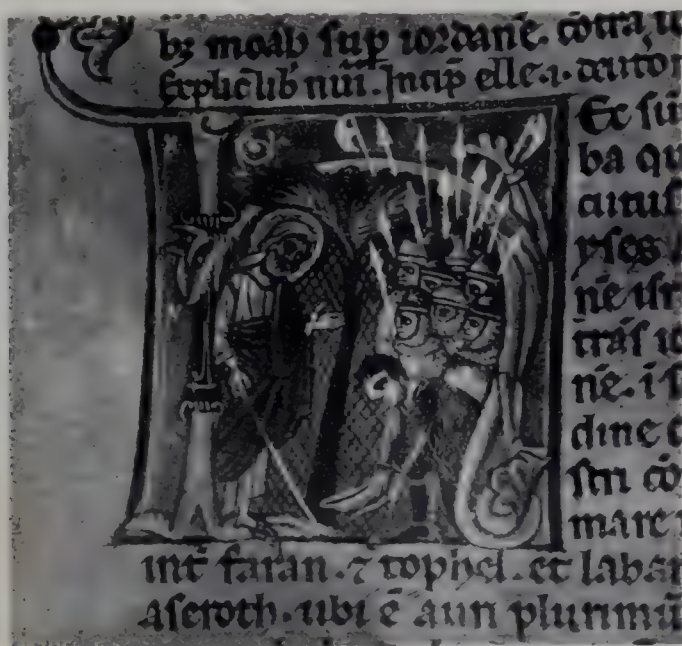 bꝫ moab sup iordanē. cōtra
Explic̄ lib̄ nūi. Incip̄ elle. i. deuto
Ec su
ba qu
cutus
yses
ne isr
trās io
ne. i s
dine c
stri cō
mare
int̄ faran. ⁊ tophel. et laban
aseroth. ubi ē auri plurimū